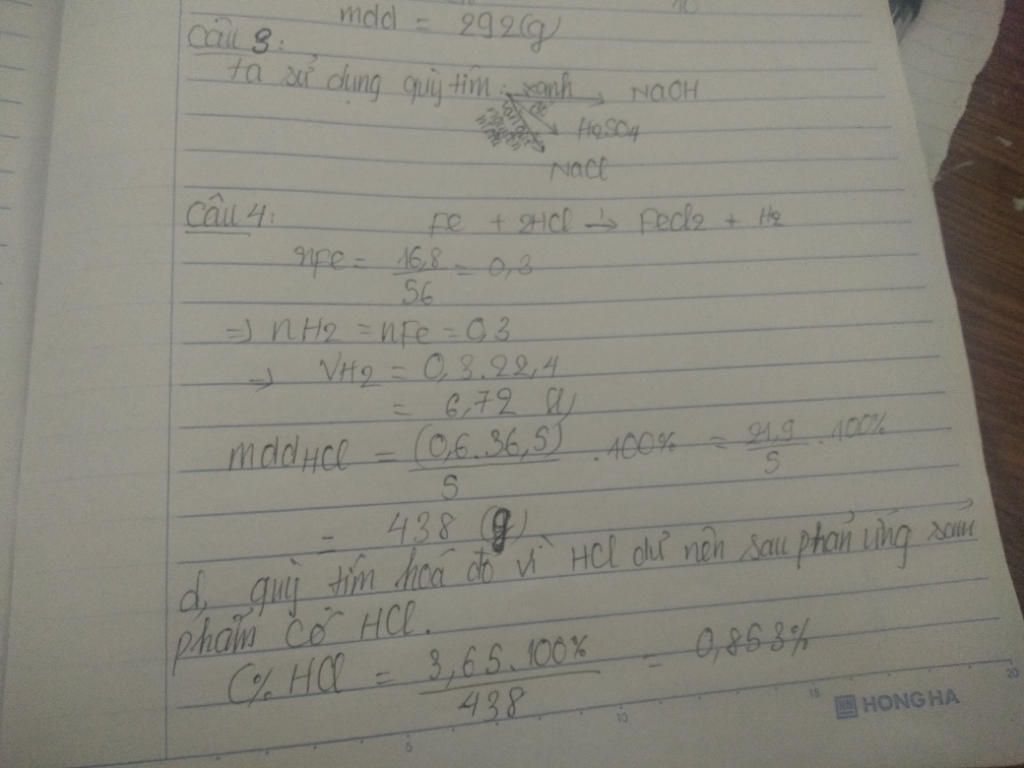 mdd = 292(g)
Câu 3:
ta sử dụng quỳ tím: xanh → NaOH
đỏ H2SO4
NaCl
Câu 4: Fe + 2HCl → FeCl2 + H2
nFe = 16,8 / 56 = 0,3
=> nH2 = nFe = 0,3
=> VH2 = 0,3.22,4
= 6,72 (l)
mddHCl = (0,6.36,5) / 5 . 100% = 21,9 / 5 . 100%
= 438 (g)
d, quỳ tím hoá đỏ vì HCl dư nên sau phản ứng sản
phẩm có HCl.
C% HCl = 3,65.100% / 438 = 0,853%
5 10 15 20
HONG HA